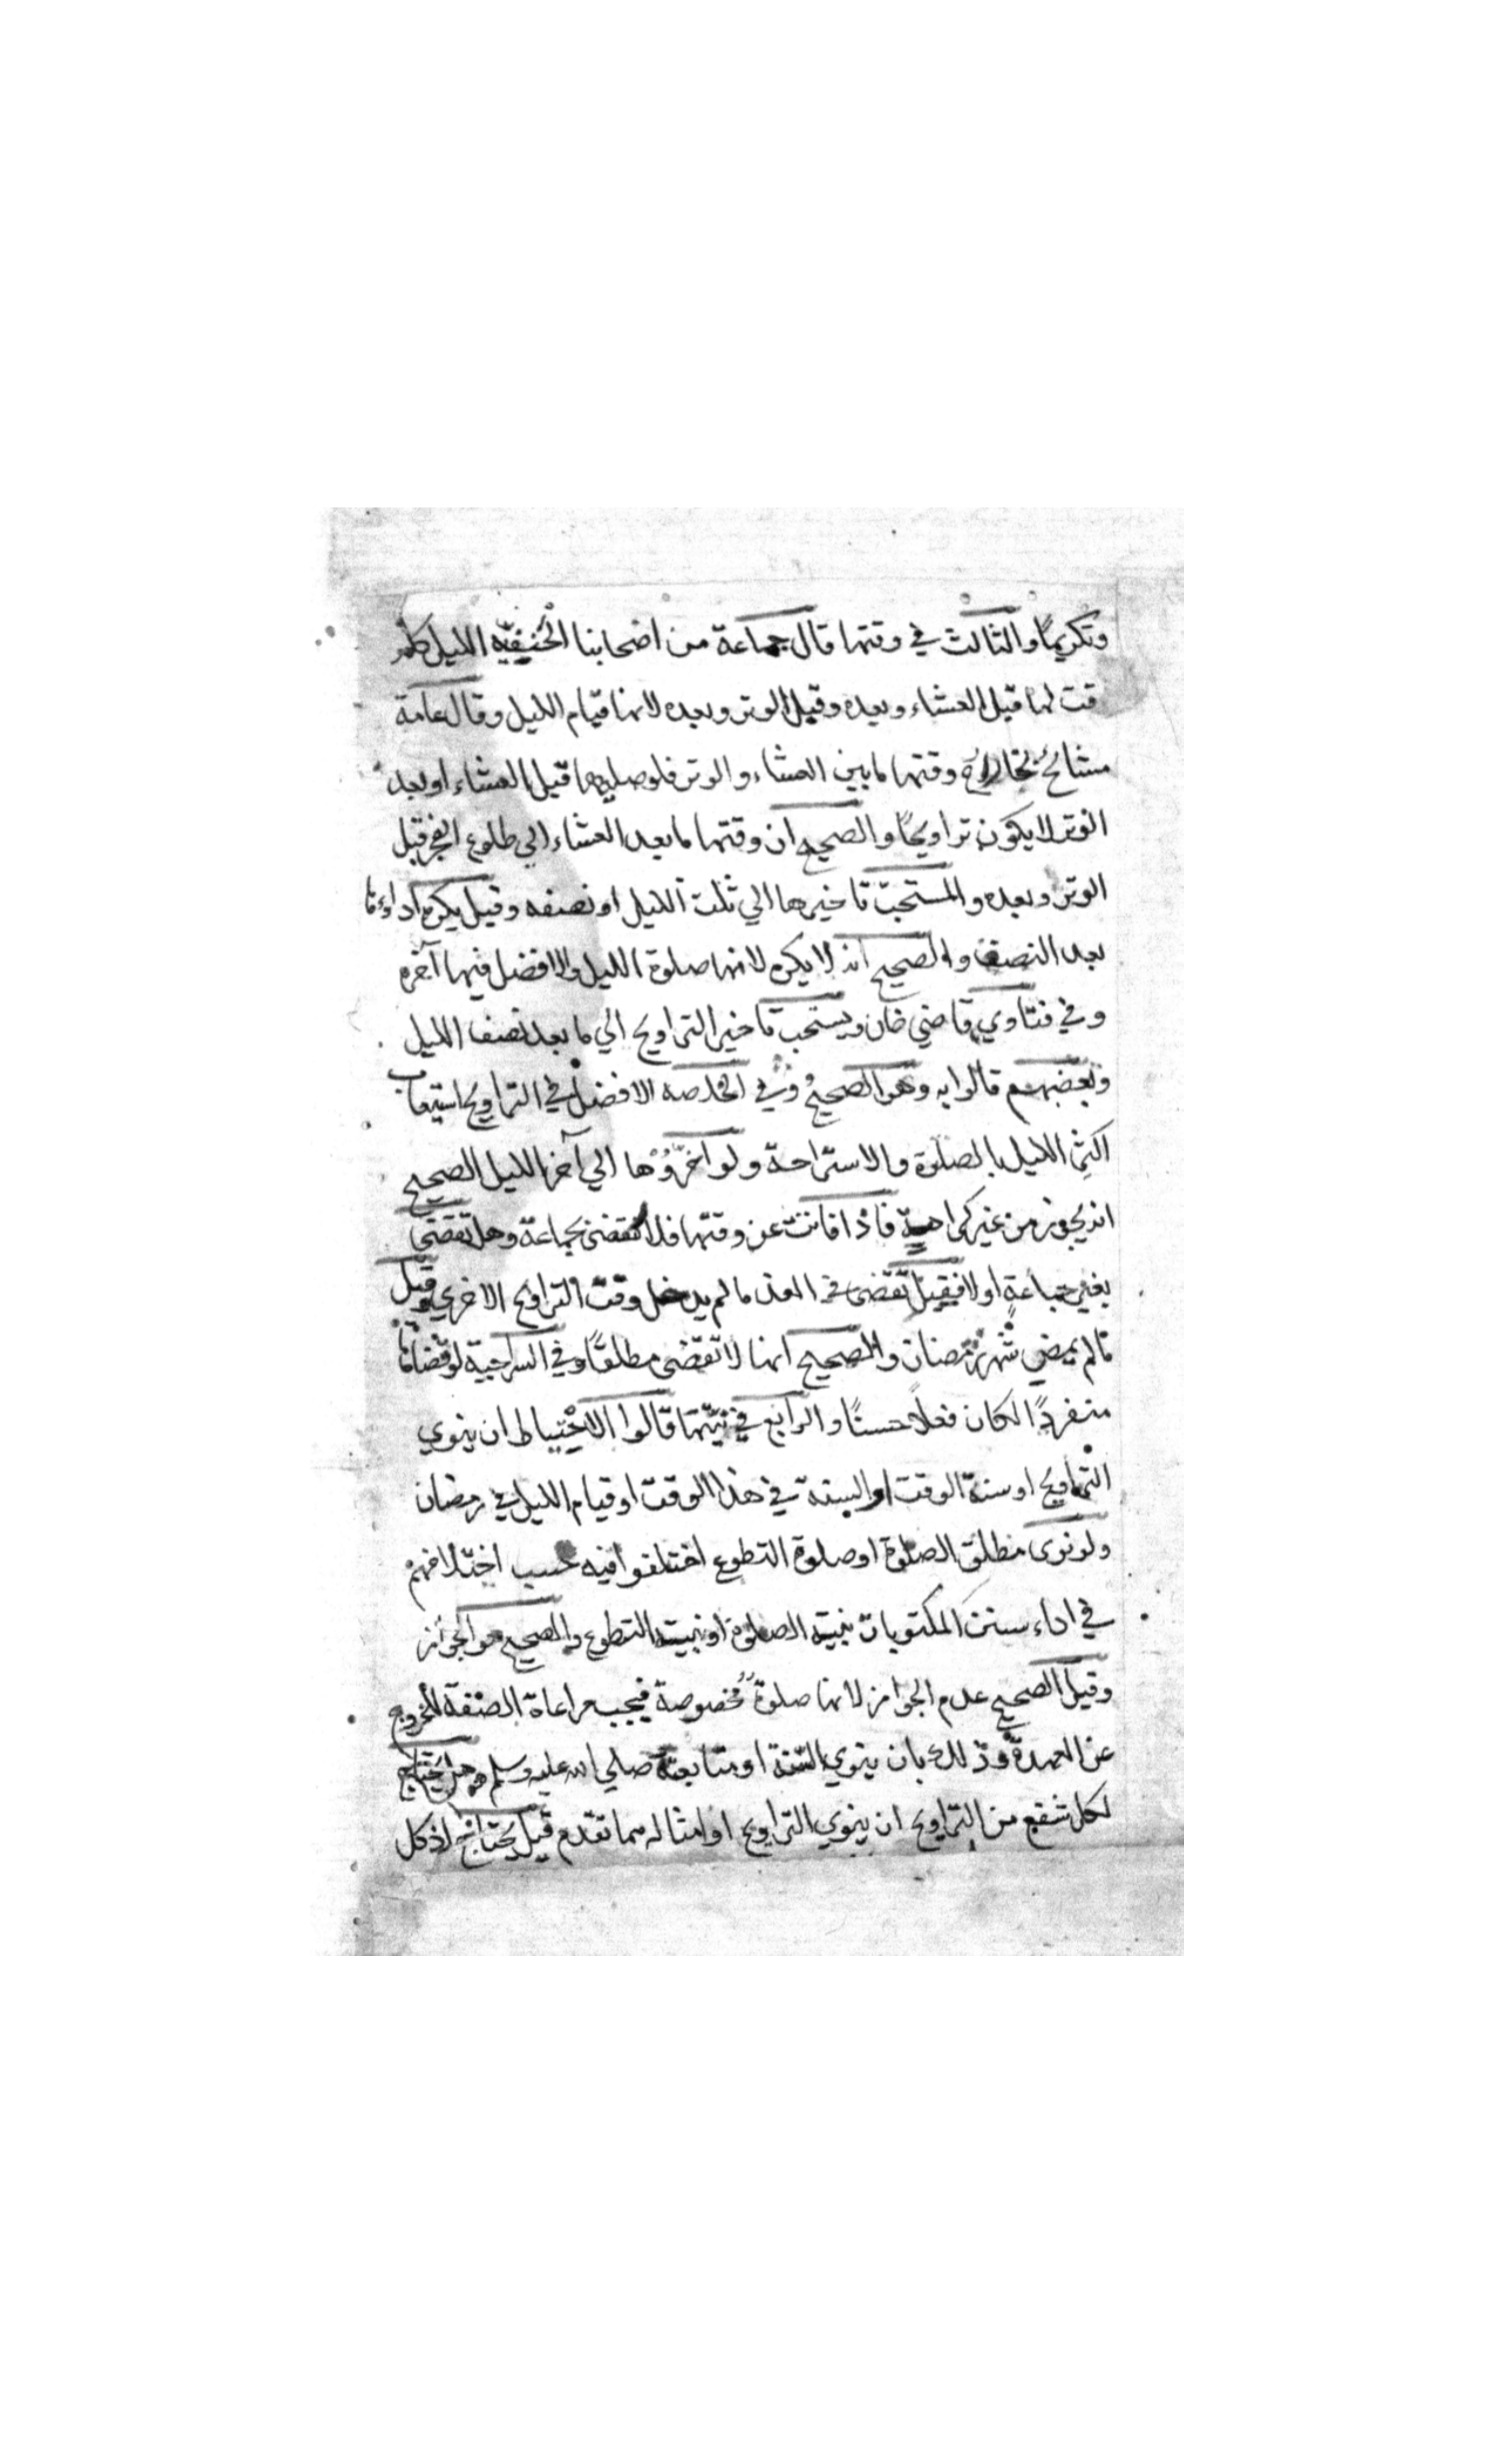 وتكريمًا والثالث في وقتها قال جماعة من اصحابنا الحنفيّه الليل كله
قت لها قبل العشاء وبعده وقبل الوتر وبعده لانها قيام الليل وقال عامة
مشائخ بخارا وقتها ما بين العشاء والوتر فلو صليها قبل العشاء او بعد
الوتر لا يكون تراويحًا والصحيح ان وقتها ما بعد العشاء الي طلوع الفجر قبل
الوتر وبعده والمستحب تاخيرها الي ثلث الليل او نصفه وقيل يكره اداوها
بعد النصف والصحيح انه لا يكره لانها صلوة الليل والافضل فيها آخره
وفي فتاوي قاضي خان ويستحب تاخير التراويح الي ما بعد نصف الليل
وبعضهم قالوا به وهو الصحيح وفي الخلاصه الافضل في التراويح استيعاب
اكثر الليل بالصلوة والاستراحة ولو اخّروُها الي آخر الليل الصحيح
انه يجوز من غير كراهية فاذا فاتت عن وقتها فلا تقضى بجماعة وهل تقضى
بغير جماعة او لا فقيل تقضى في الغد ما لم يدخل وقت التراويح الاخري وقيل
ما لم يمضي شهر رمضان والصحيح انها لا تقضى مطلقًا وفي السراجية لو قضاها
منفردًا لكان فعلًا حسنًا والرابع في نيّتها قالوا الاحتياط ان ينوي
التراويح او سنة الوقت او السنة في هذا الوقت او قيام الليل في رمضان
ولو نوى مطلق الصلوة او صلوة التطوع اختلفوا فيه حسب اختلافهم
في اداء سنن المكتوبات بنية الصلوة او بنية التطوع والصحيح هو الجواز
وقيل الصحيح عدم الجواز لانها صلوةٌ مخصوصة فيجب مراعاة الصفة للخروج
عن العهدة وذلك بان ينوي السّنة او متابعة صلي الله عليه وسلم وهل يحتاج
لكل شفع من التراويح ان ينوي التراويح او امثاله مما تقدم قيل يحتاج اذ كل